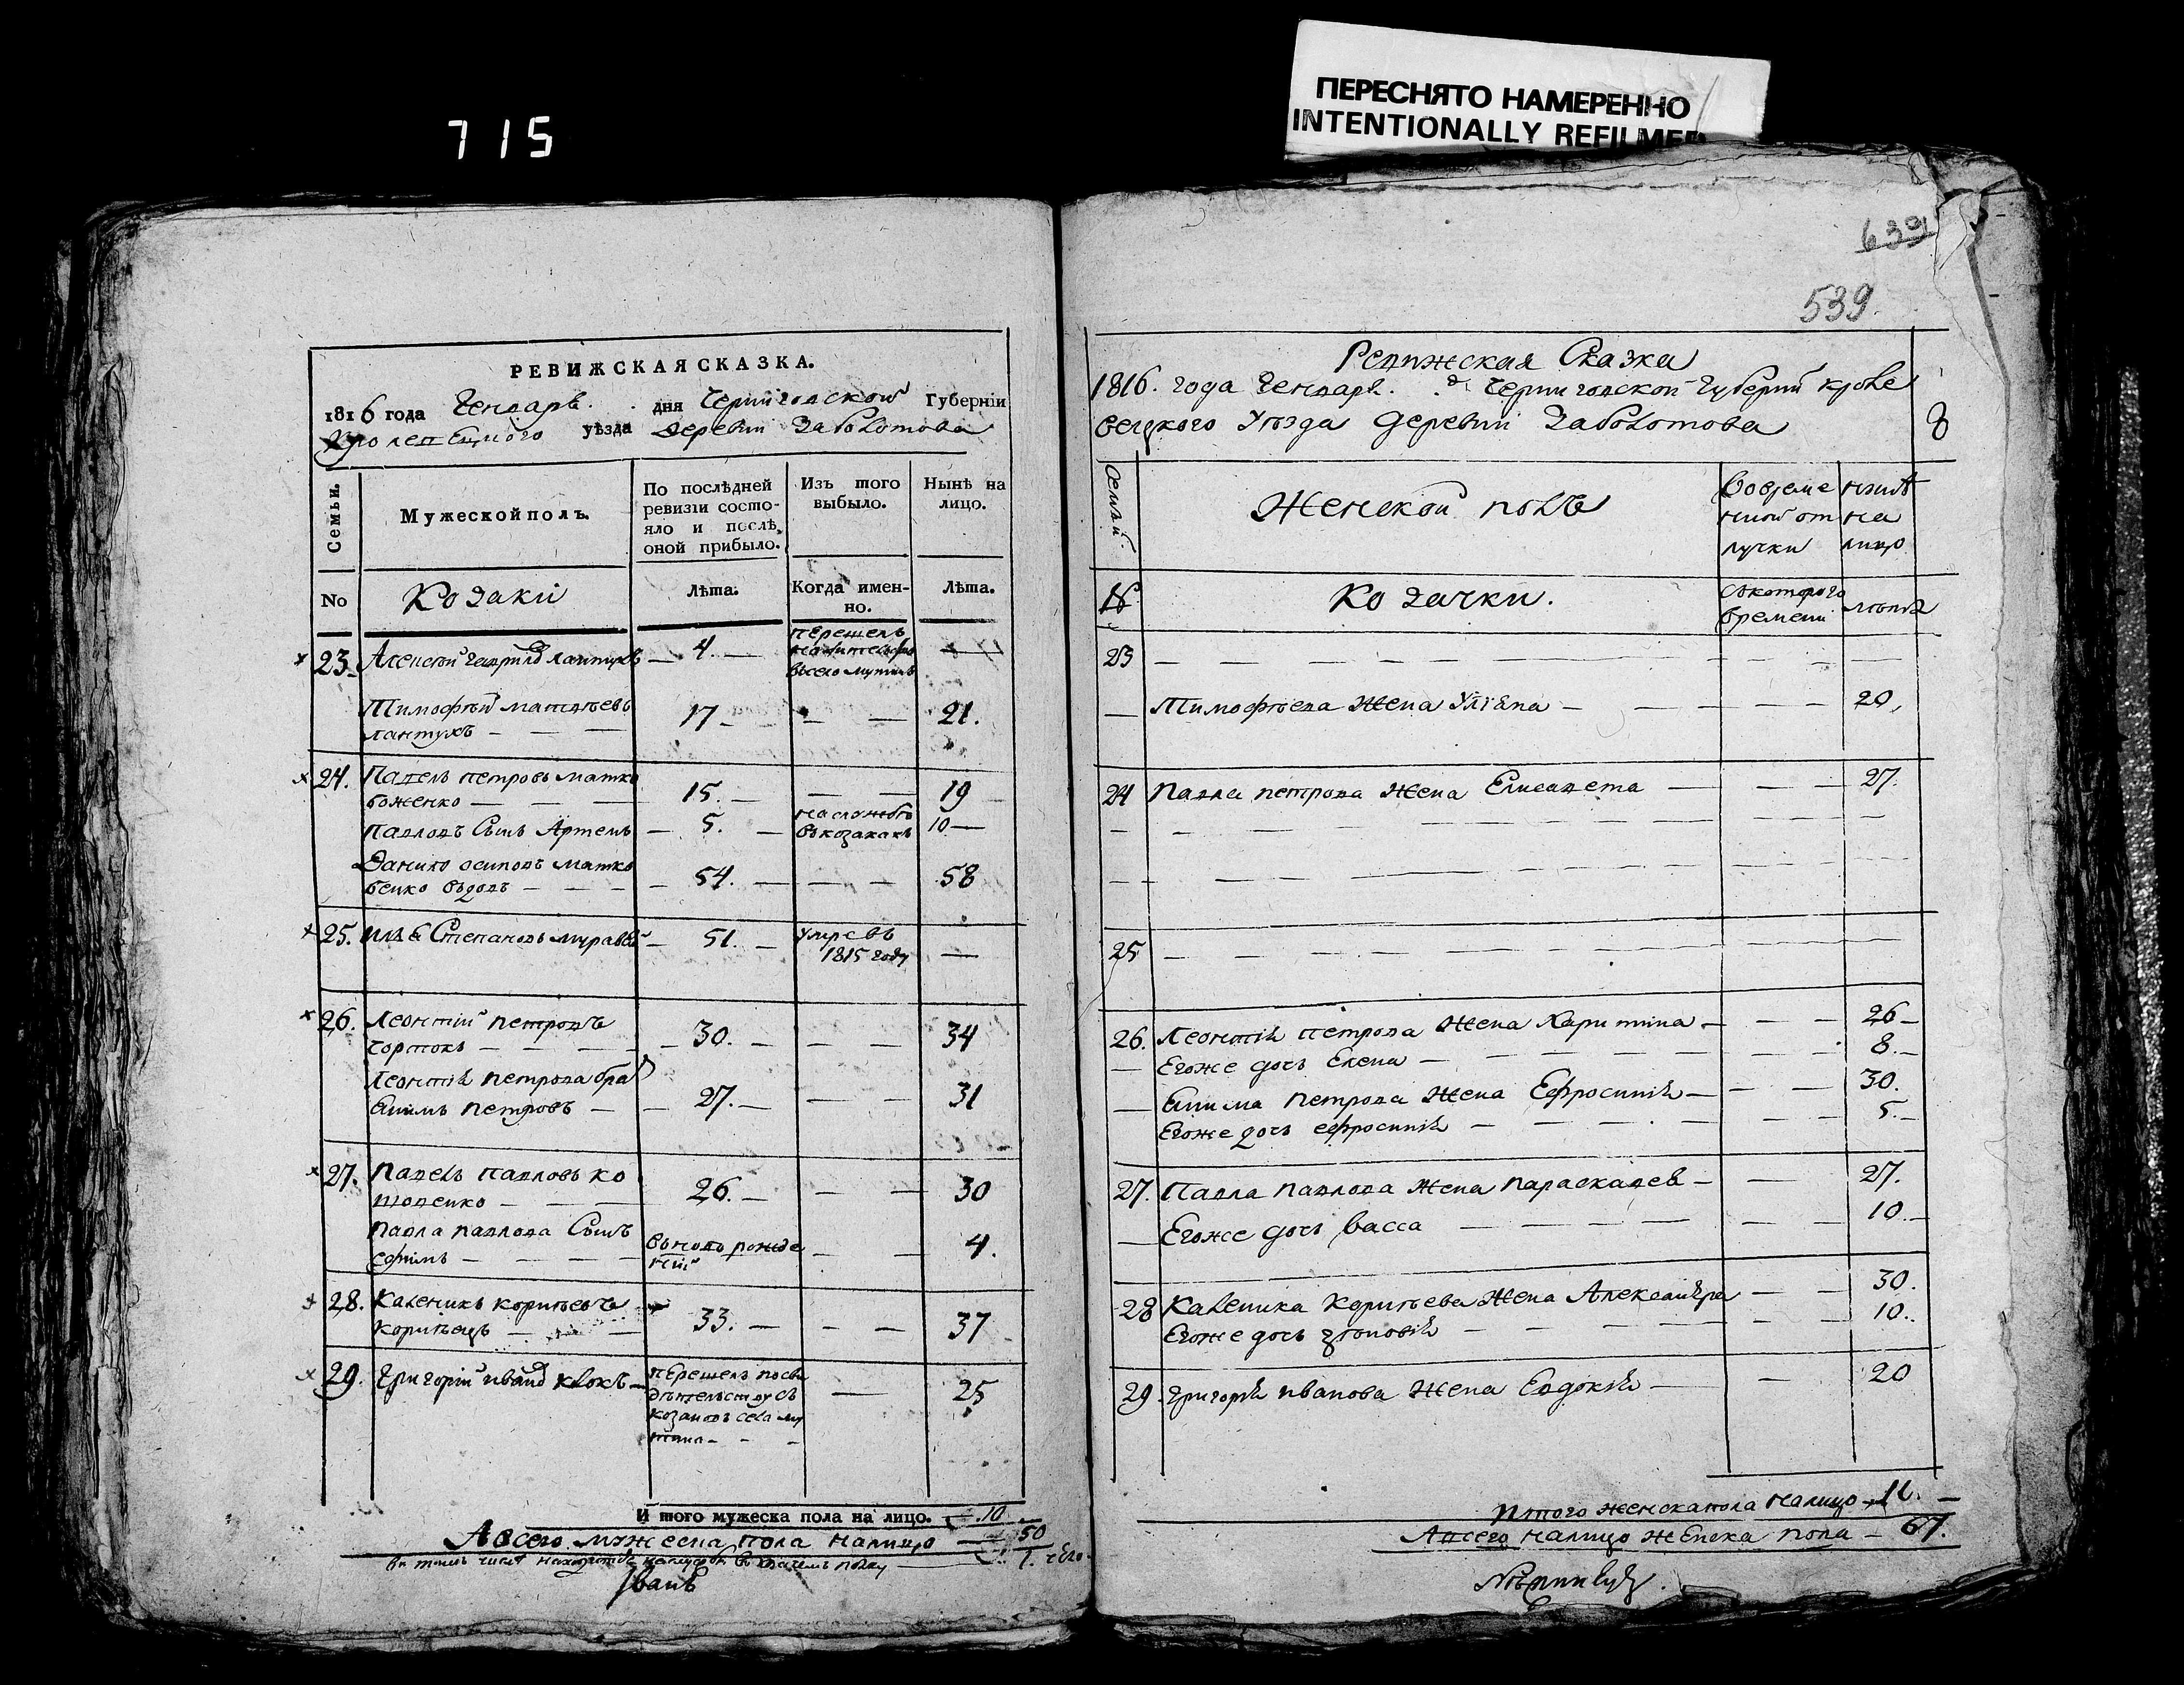 715
ПЕРЕСНЯТО НАМЕРЕННО
INTENTIONALLY REFILMED
639
539.
РЕВИЖСКАЯ СКАЗКА.
1816 года Генваря дня Черниговской Губернiи
уѣзда деревни Заболотова
Семьи.
Мужеской полъ.
По послѣдней ревизiи состо-
яло и послѣ
оной прибыло.
Изъ того
выбыло.
Нынѣ на
лицо.
No
Козаки
Лѣта.
Когда имен-
но.
Лѣта.
23 Алексѣй Гаврилов Лантухъ — 4. — перешелъ
Тимофѣй Матвѣевъ
Лантухъ — 17 — — 21.
24. Павелъ Петровъ Матко
боженко — 15. — — 19
Павловъ Сынъ Артемъ — 5. — на службѣ
въ козакахъ 10 —
Данило Осиповъ Матко
бенко вдовъ — 54. — — 58
25. Степановъ Муравей — 51. — умре въ
1815 году —
26. Леонтiй Петровъ
Чортокъ — 30. — — 34
Леонтiя Петрова братъ
Екимъ Петровъ — 27. — — 31
27. Павелъ Павловъ Ко
шовенко — 26. — — 30
Павла Павлова Сынъ
Ефимъ — вновь рожде
нiй — 4.
28. Каленикъ Корнѣевъ
Корнѣецъ — 33. — — 37
29. Григорiй Иванов Клокъ — перешелъ по сви
дѣтельству съ
козаковъ села Му
тина — — 25
И того мужеска пола на лицо. — 10
А всего мужеска пола налицо — 50
1.
Иванъ
Ревижская Сказка
1816. года Генваря. д. Черниговской Губернiи кроле
вецкого Уѣзда Деревни Заболотова
8
Семьи
Женской полъ
Во време
нной от
лучки
ныне
на
лицо
№
Козачки.
Съ которого
времени
лѣта
23 — — —
— Тимофѣева Жена Улiяна — — 20.
24 Павла Петрова Жена Елисавета — — 27.
25 — — —
26. Леонтiя Петрова Жена Харитина — — 26 —
— Егоже дочь Елена — — 8. —
— Екима Петрова Жена Ефросинiя — — 30.
Егоже дочь Ефросинiя — — 5. —
27. Павла Павлова Жена Параскавея — — 27.
— Егоже дочь Васса — — 10. —
28 Каленика Корнѣева Жена Александра — — 30.
Егоже дочь Зѣновiя — — 10.
29. Григорiя Иванова Жена Евдокiя — — 20
Итого женска пола налицо — 11. —
А всего налицо женска пола — 67.